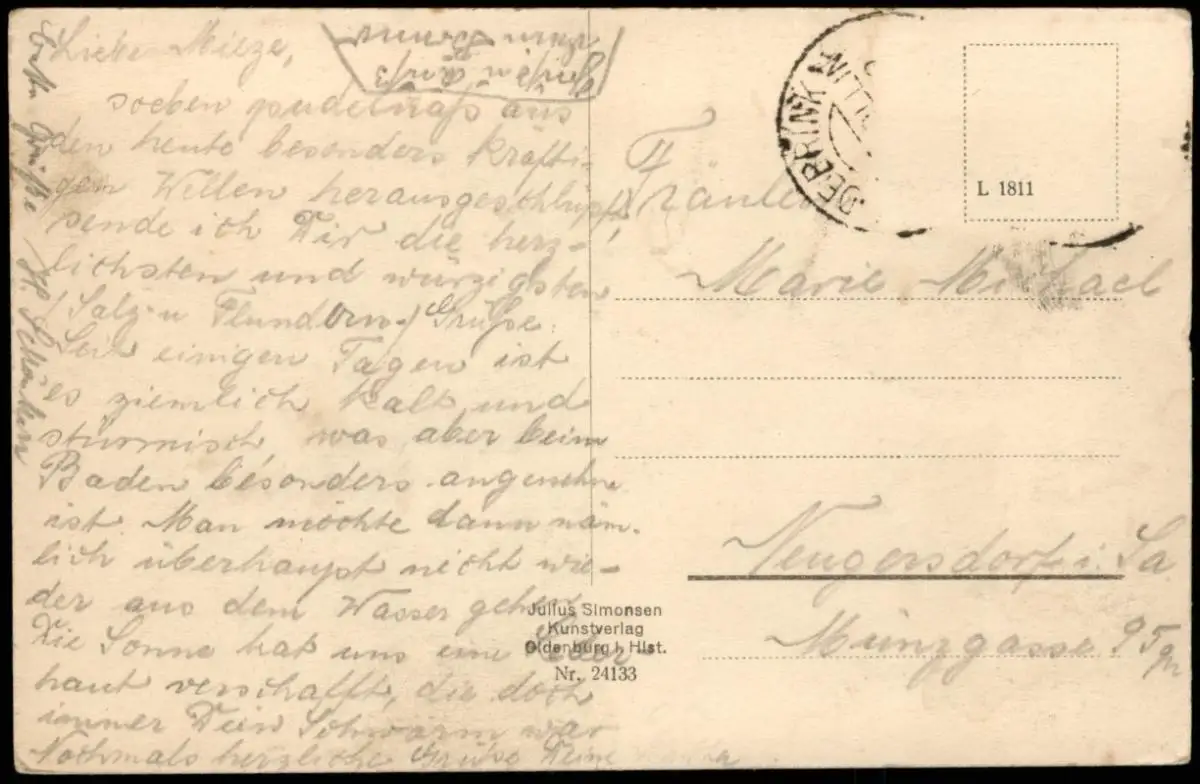 Liebe Mieze,
soeben pudelnaß aus
den heute besonders kräfti-
gen Wellen herausgeschlüpft,
sende ich Dir die herz-
lichsten und würzigsten
/Salz- u Flundern-/ Grüße.
Seit einigen Tagen ist
es ziemlich kalt und
stürmisch, was aber beim
Baden besonders angenehm
ist. Man möchte dann näm-
lich überhaupt nicht wie-
der aus dem Wasser gehen.
Die Sonne hat uns eine Leder-
haut verschafft, die doch
immer Dein Schwarm war
Nochmals herzliche Grüße Deine
Grüße
DEBRINK
WITTE
L 1811
Fräulein
Marie Michael
Neugersdorf i. Sa
Münzgasse 9
Julius Simonsen
Kunstverlag
Oldenburg i. Hlst.
Nr. 24133